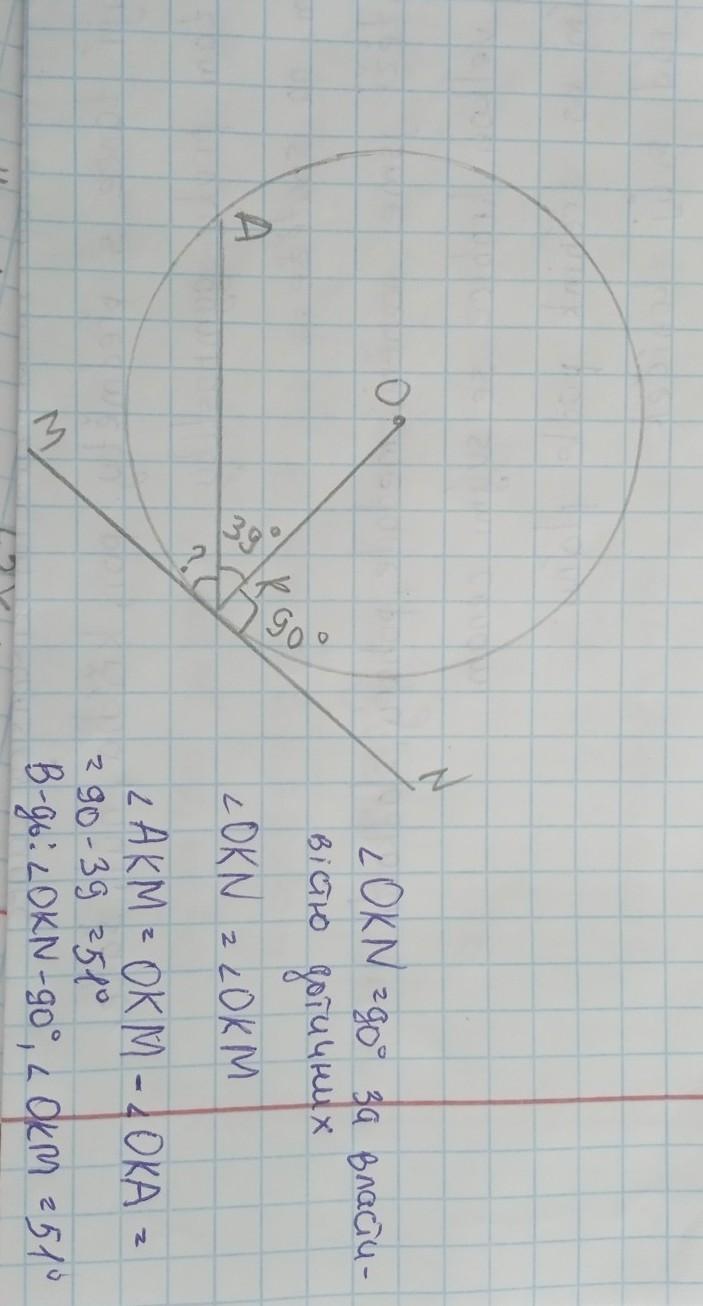 A
O
M
39°
?
K
90°
N
∠OKN = 90° за власти-
вістю дотичних
∠OKN = ∠OKM
∠AKM = OKM - ∠OKA =
= 90 - 39 = 51°
В-дь: ∠OKN - 90°, ∠OKM = 51°